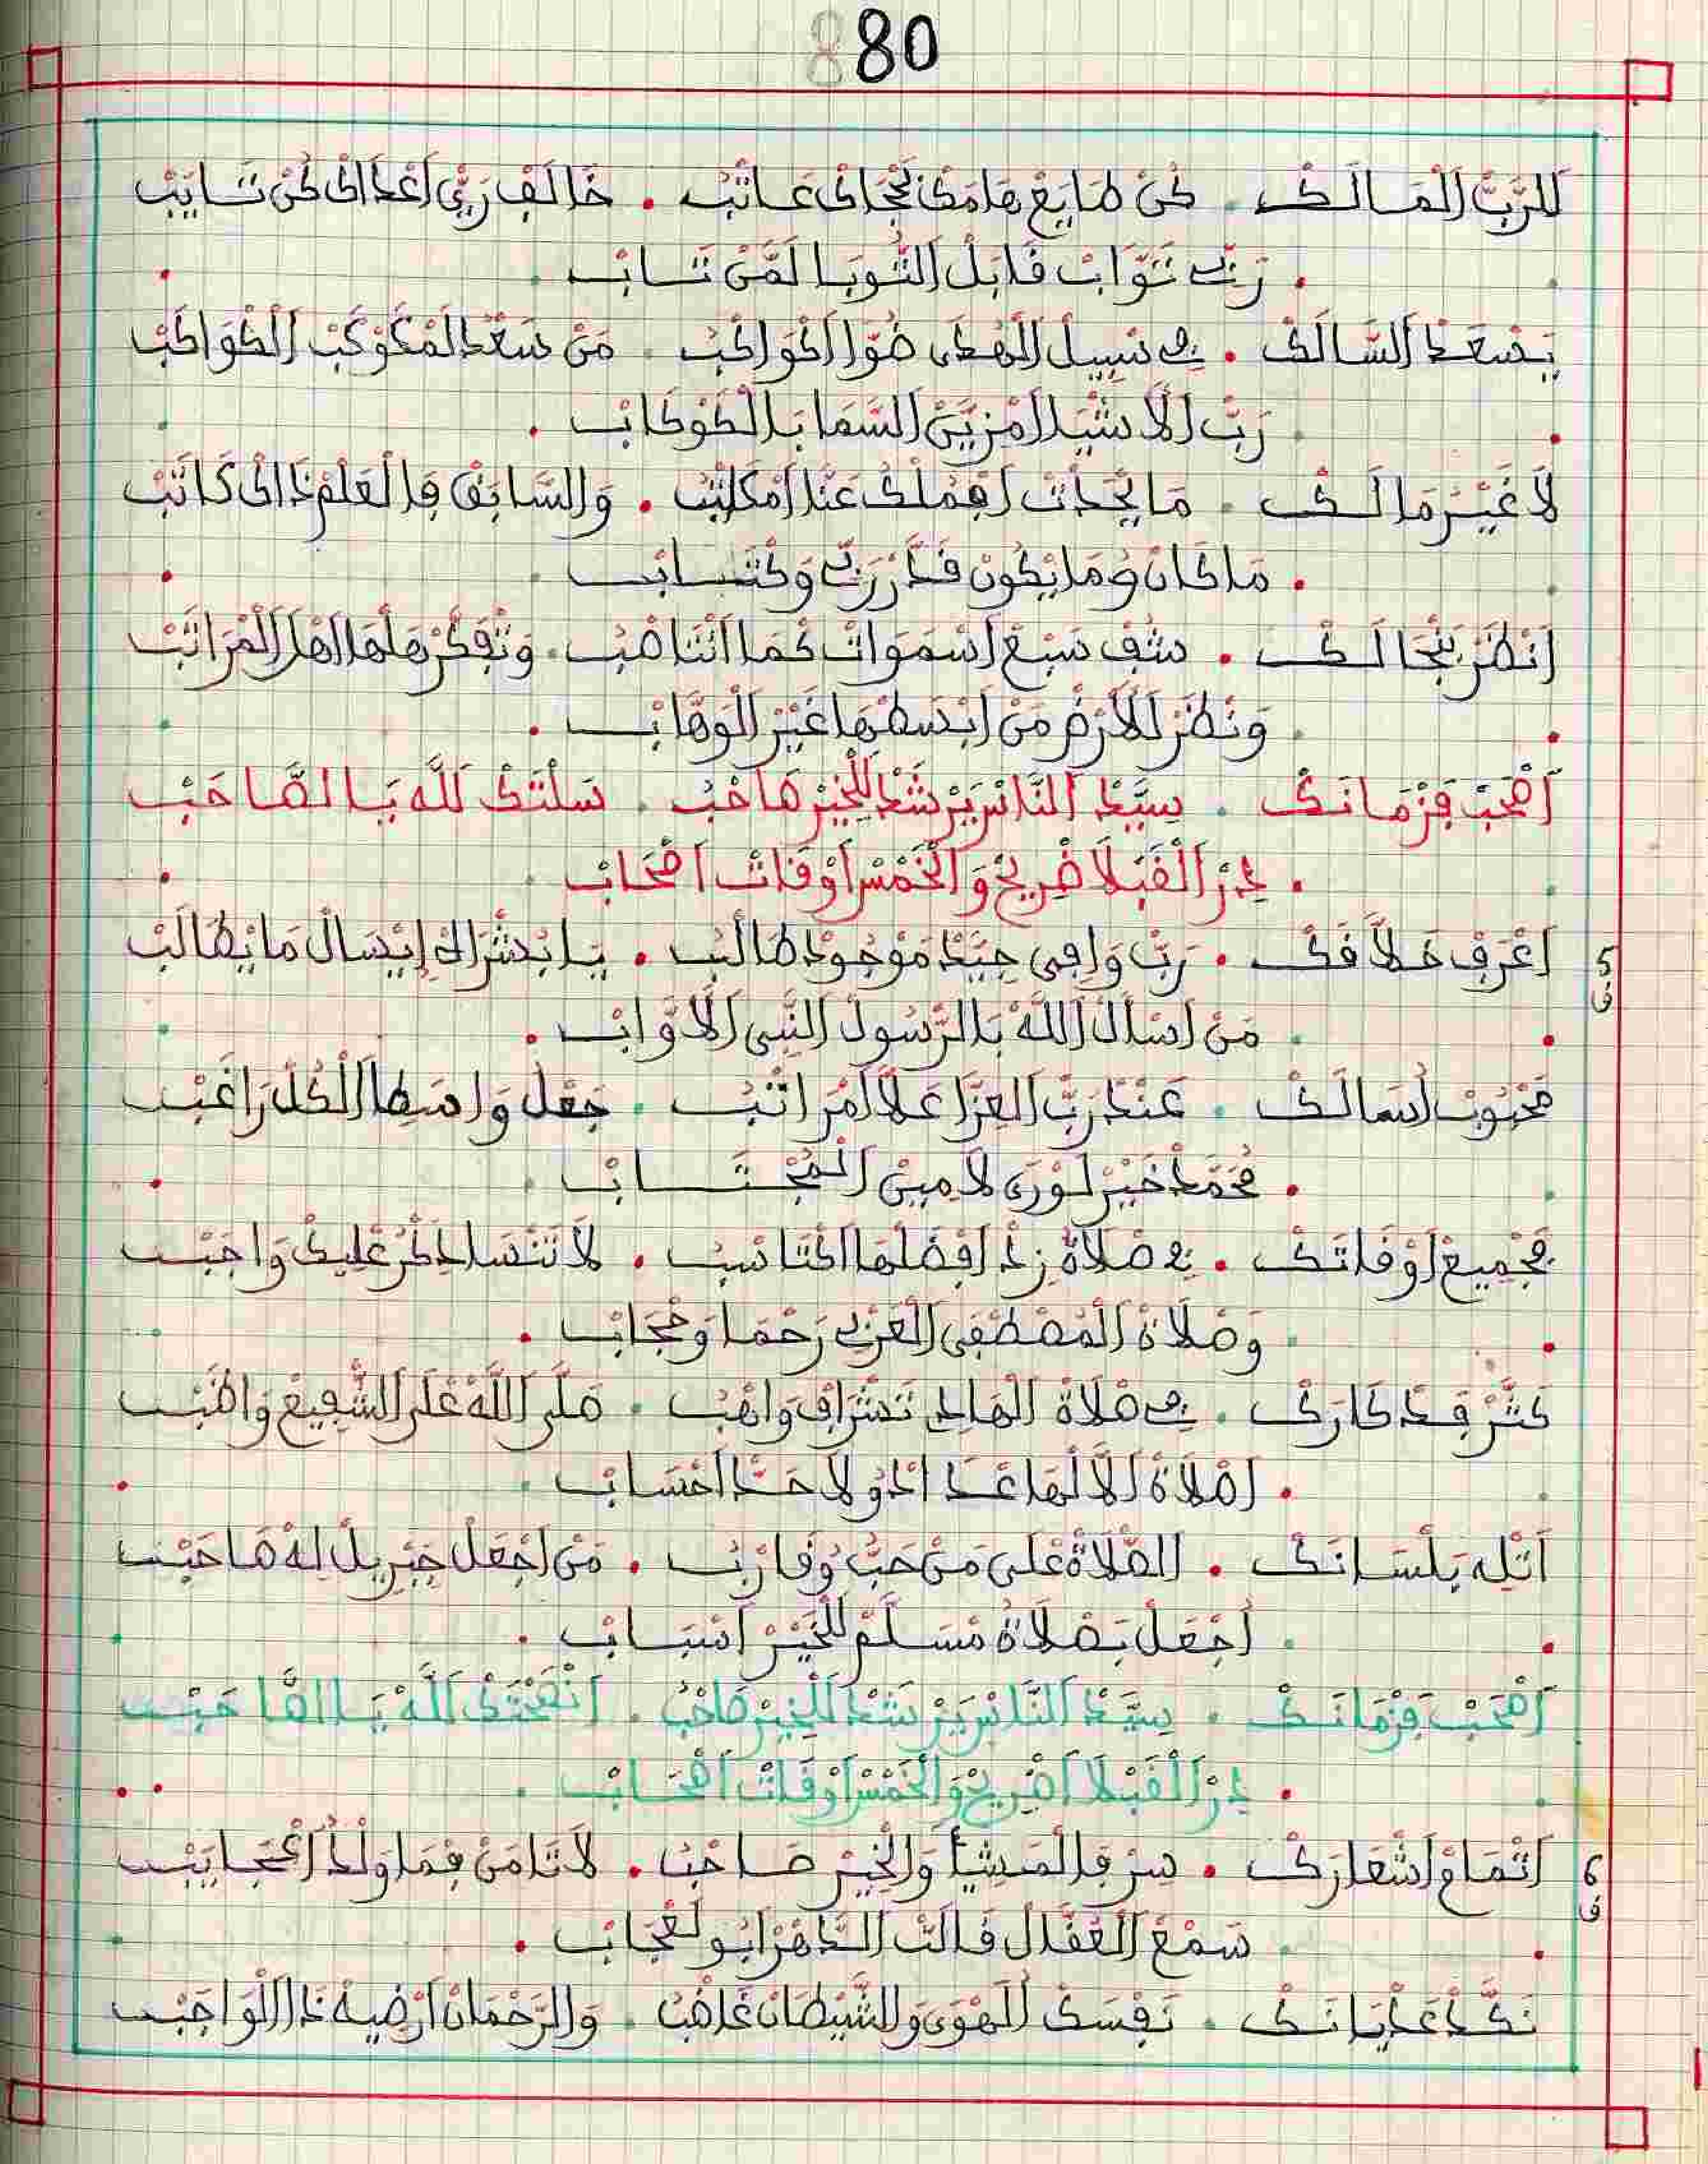 80
لَلرَّبّْ اَلْمَالَكْ . كُنْ طَايَعْ هَامَكْ لَجْرَاكْ عَاتَبْ . خَالَفْ رَبِّي اَعْدَاكْ كُنْ تَايَبْ
. رَبِّي تَوَّابْ قَابَلْ اَلتُّوبَا لَمَّنْ تَابْ .
يَسْعَدْ اَلسَّالَكْ . فِي سْبِيلْ اَلْهُدَى ضُوَّا اَكْوَاكْبُ . مَنْ سَعْدُ اَلْمَكَوْكَبْ اَلْكْوَاكَبْ
. رَبّْ اَلَاشْيَا اَمْزَيَّنْ اَلسَّمَا بَالْكَوْكَابْ .
لَا غَيْرْ مَالَكْ . مَا يَحْدَثْ اَفْمُلْكْ عَنْدْ اَمْكَاتْبُ . وَالسَّابَقْ فَالْعَلْمْ ذَاكْ كَاتَبْ
. مَا كَانْ وُمَا يْكُونْ قَدَّرْ رَبِّي وَكْتَابْ .
اَنْظَرْ بَنْجَالَكْ . شُفْ سَبْعْ اَسْمَوَاتْ كْمَا اَتْنَاصْبُ . وَتْفَكَّرْ هَلْهَا اَهْلْ اَلْمْرَاتَبْ
. وَنْظَرْ لَلَارْضْ مَنْ اَبْسَطْهَا غَيْرْ اَلْوَهَّابْ .
اَصْحَبْ فَزْمَانَكْ . سِيَّدْ اَلنَّاسْ يَرْشَدْ لَلْخِيرْ صَاحْبُ . سَلْتَكْ لَلَّهْ يَا الصَّاحَبْ
. دِرْ اَلْقَبْلَا ضْرِيحْ وَالْخَمْسْ اَوْقَاتْ اَصْحَابْ .
5 ق
اَعْرَفْ خَلَّاقَكْ . رَبّْ وَافِي جِيَّدْ مَوْجُودْ طَالْبُ . يَا بُشْرَاكْ إِيْسَالْ مَا يْطَالَبْ
. مَنْ اَسْأَلْ اَللَّهْ بَالرَّسُولْ اَلنَّبِي اَلَاوَّابْ .
مَحْبُوبْ اَسَالَكْ . عَنْدْ رَبّْ اَلْعِزَّا عَلَّا اَمْرَاتْبُ . جَعْلُ وَاسَطَا اَلْكُلّْ رَاغَبْ
. مُحَمَّدْ خَيْرْ لَوْرَى لَامِينْ اَلْمُجْتَابْ .
بَجْمِيعْ اَوْقَاتَكْ . فِي صْلَاةُ زِدْ اَفْضَلْهَا اَكْتَاسْبُ . لَا تَنْسَا ذِكْرْ عْلِيكْ وَاجَبْ
. وَصْلَاةْ اَلْمُصْطَفَى اَلْعَرْبِي رَحْمَا وَحْجَابْ .
كَثَّرْ فِدْكَارَكْ . فِي صْلَاةْ اَلْهَادِي تَشْرَافْ وَاهْبُ . صَلَّى اَللَّهْ عْلَى اَلشّْفِيعْ وَاظَبْ
. اَصْلَاةْ اَلَّا لْهَا عْدَادْ وُلَا حَدّْ اَحْسَابْ .
اَتْلِهْ بَلْسَانَكْ . اَلصّْلَاةْ عْلَى مَنْ حَبُّ وُقَارْبُ . مَنْ اَجْعَلْ جَبْرِيلْ لِهْ صَاحَبْ
. اَجْعَلْ بَصْلَاةُ مْسَلَّمْ لَلْخَيْرْ اَسْبَابْ .
اَصْحَبْ فَزْمَانَكْ . سِيَّدْ اَلنَّاسْ يَرْشَدْ لَلْخِيرْ صَاحْبُ . اَنْصَحْتَكْ لَلَّهْ يَا الصَّاحَبْ
. دِرْ اَلْقَبْلَا اَضْرِيحْ وَالْخَمْسْ اَوْقَاتْ اَصْحَابْ .
6 ق
اَتْمَامْ اَشْعَارَكْ . سِرْ فَالْمَشْيَأْ وَالْخِيرْ صَاحْبُ . لَا تَامَنْ فَمَا وَلْدُ اَعْجَايَبْ
. سَمْعْ اَلْعُقَّالْ قَالْتْ اَلدَّهْرْ اَبُو لَعْجَابْ .
نَكَّدْ عَدْيَانَكْ . نَفْسَكْ اَلْهْوَى وَالشَّيْطَانْ غَاضْبُ . وَالرَّحْمَانْ اَرْضِيهْ ذَا اَلْوَاجَبْ